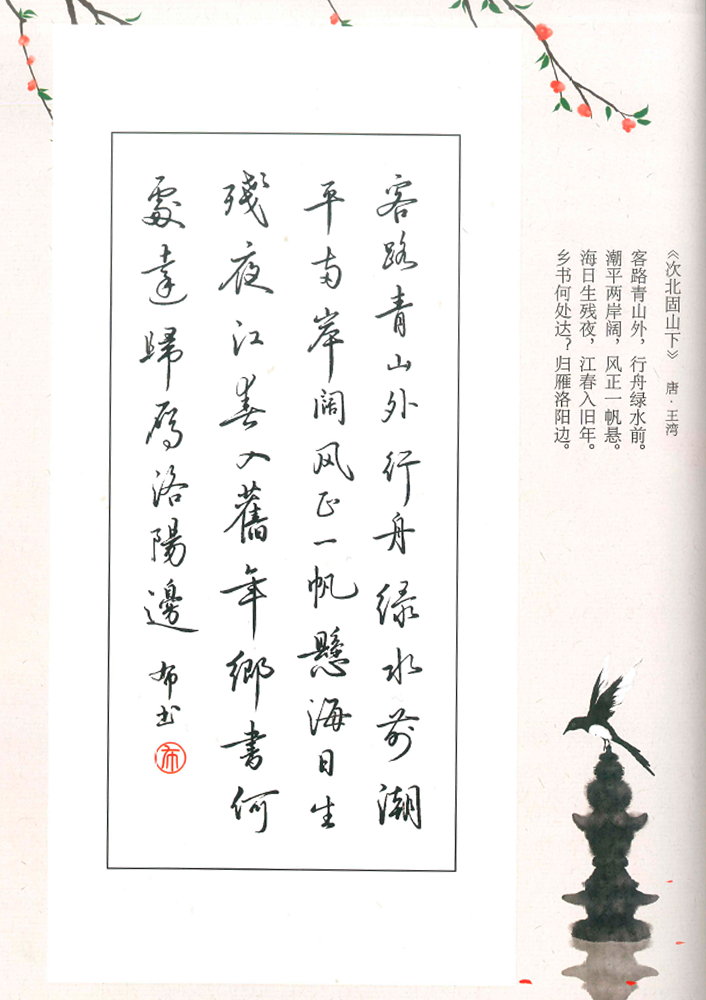 《次北固山下》 唐·王湾
客路青山外，行舟绿水前。
潮平两岸阔，风正一帆悬。
海日生残夜，江春入旧年。
乡书何处达？归雁洛阳边。
客路青山外行舟绿水前潮
平两岸阔风正一帆懸海日生
殘夜江春入舊年鄉書何
處達歸雁洛陽邊 布书
布